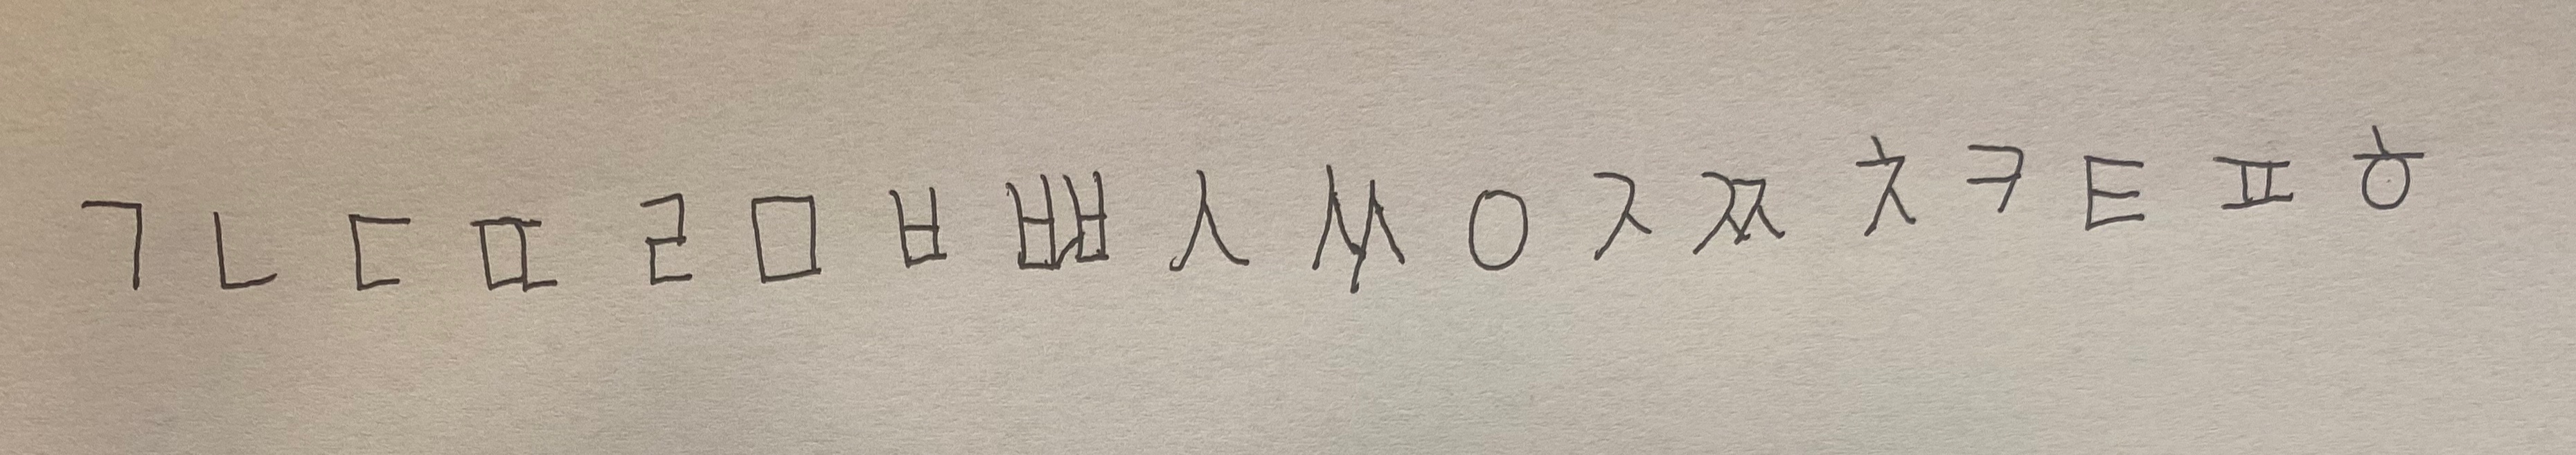 ㄱ ㄴ ㄷ ㄸ ㄹ ㅁ ㅂ ㅃ ㅅ ㅆ ㅇ ㅈ ㅉ ㅊ ㅋ ㅌ ㅍ ㅎ